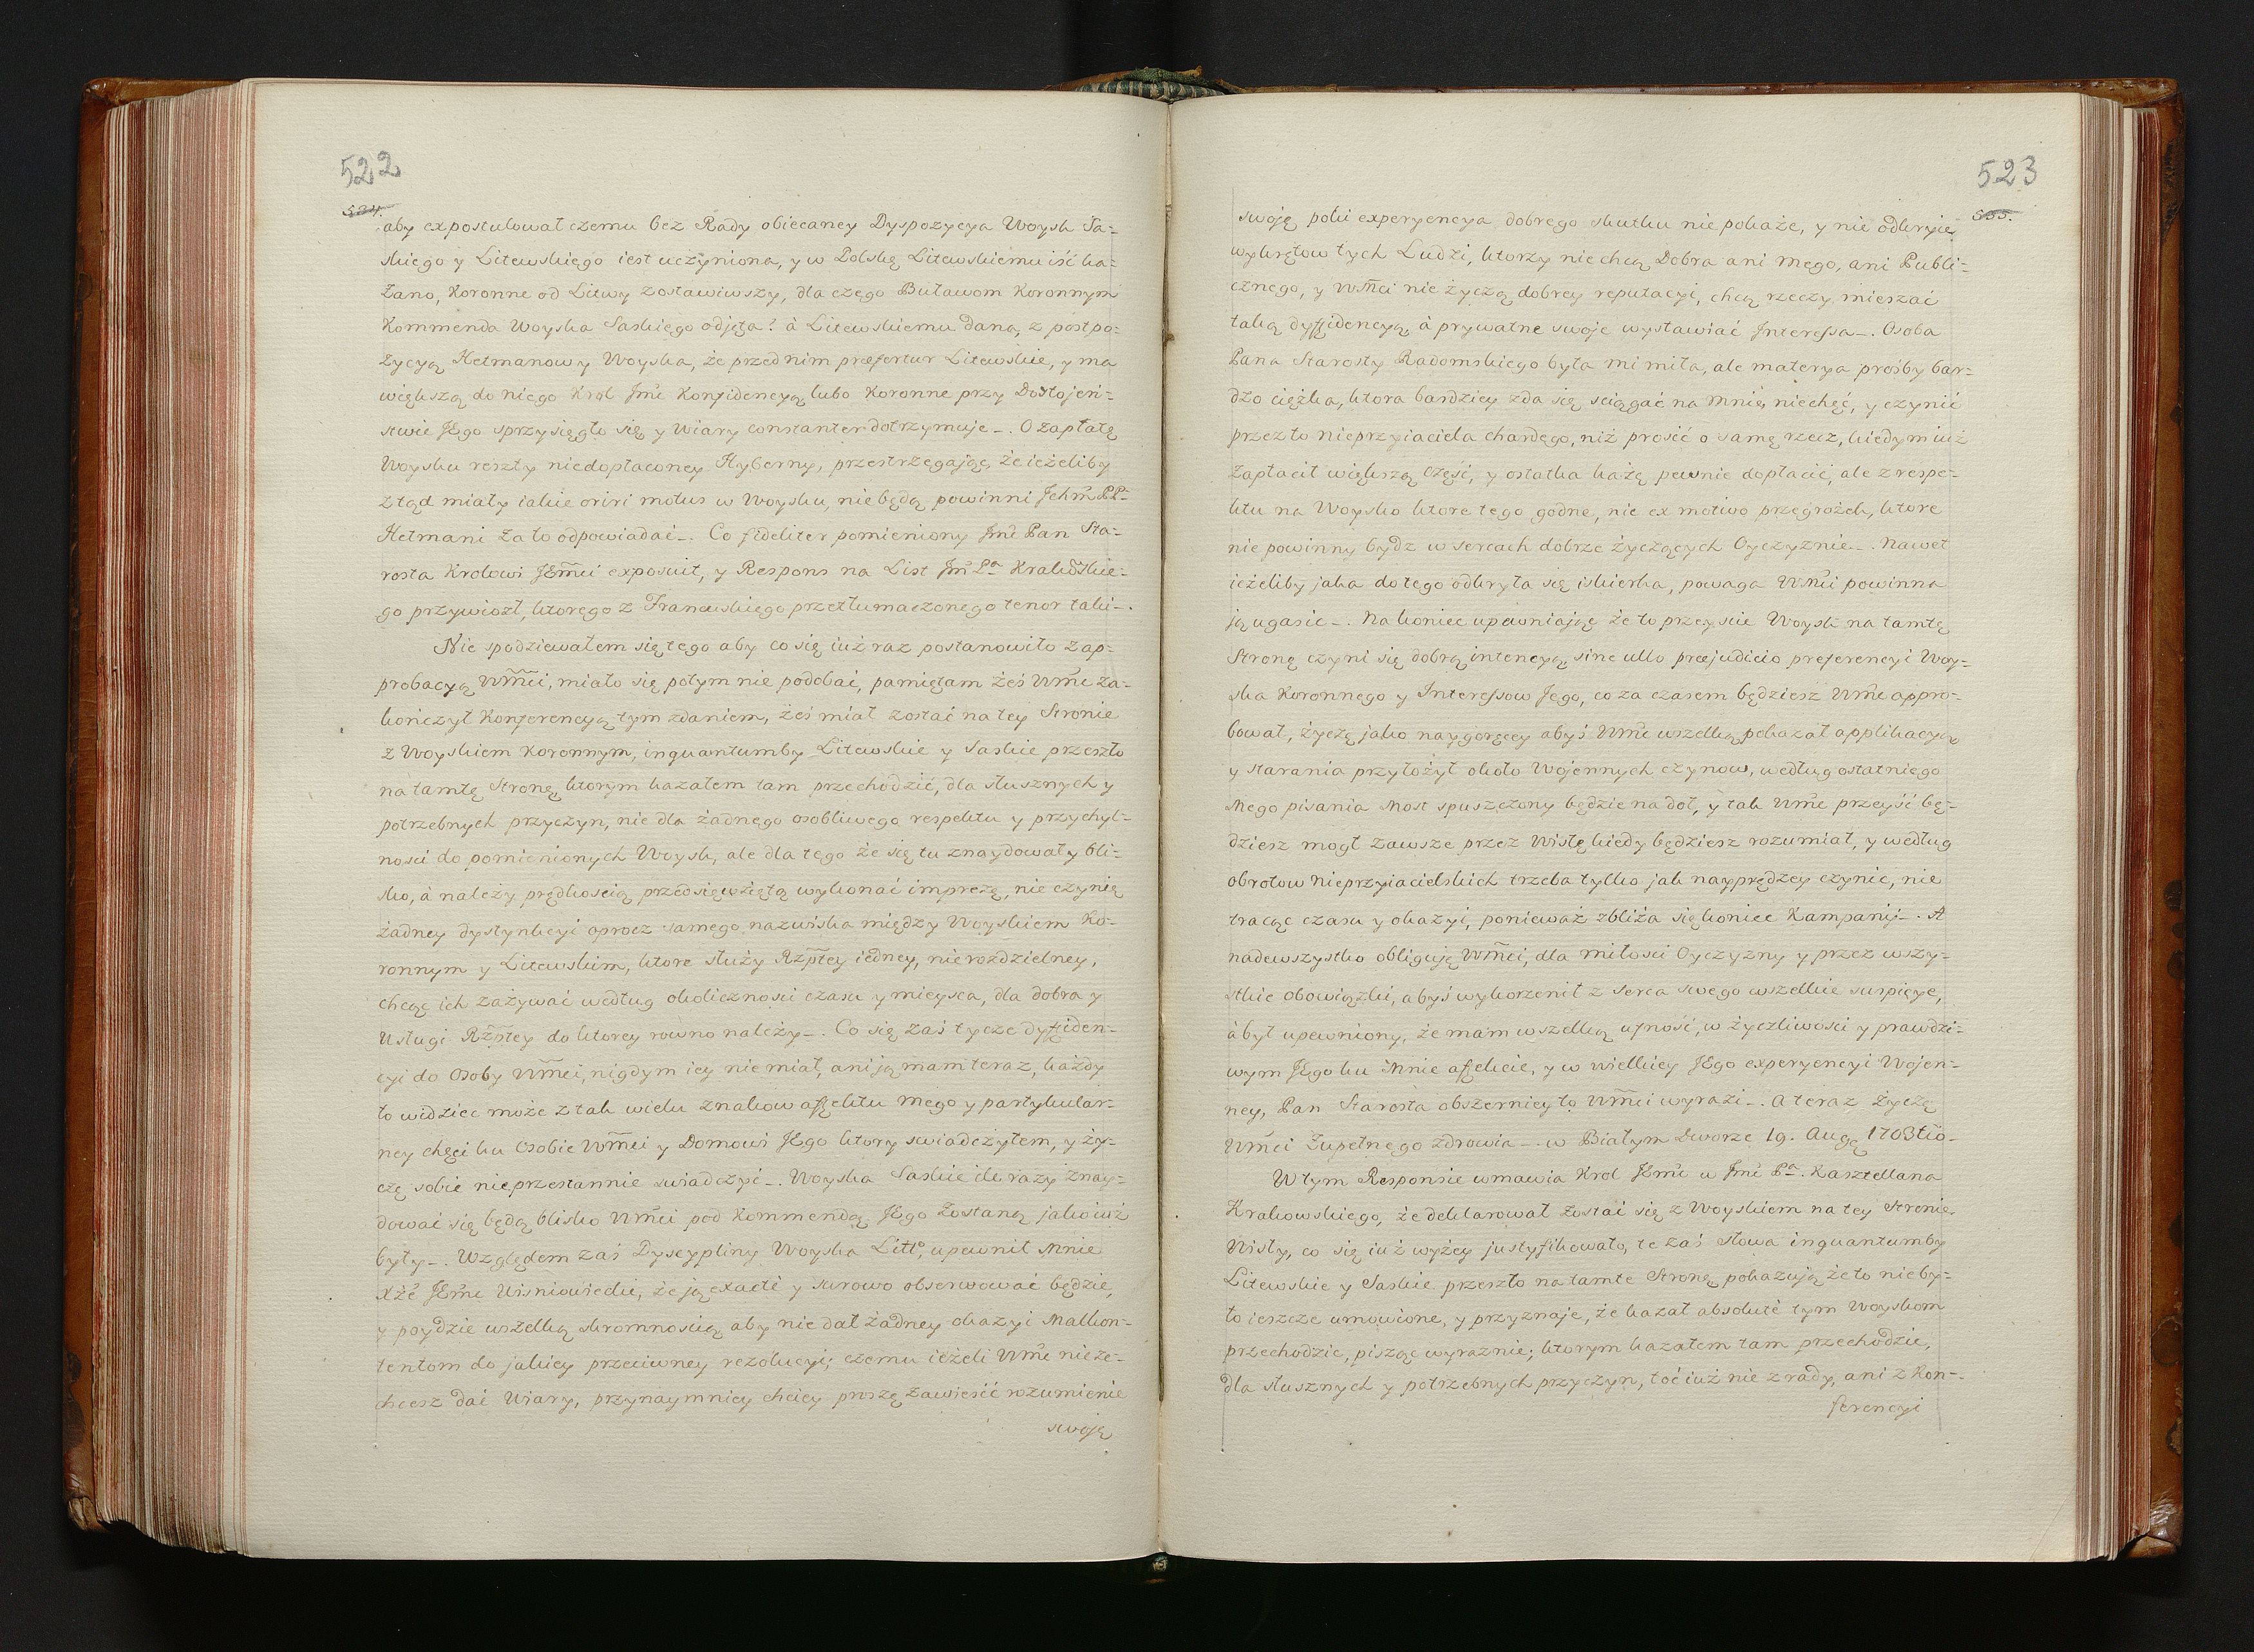 522
524.
aby expostulował czemu bez Rady obiecaney Dyspozycya Woysk Sa=
skiego y Litewskiego iest uczyniona, y w Polskę Litewskiemu iść ka=
zano, Koronne od Litwy zostawiwszy, dla czego Buławom Koronnym
Kommenda Woyska Saskięgo odjęta? à Litewskiemu dana, z postpo=
zycyą Hetmanow y Woyska, że przed nim præfertur Litewskie, y ma
większą do niego Krol Jm̃ć Konfidencyą lubo Koronne przy Dostojeń=
stwie JEgo sprzysięgło się y Wiary constanter dotrzymuje_. O Zapłatę
Woysku reszty niedopłaconey Hyberny, przestrzęgając, że ieżeliby
z tąd miały iakie oriri motus w Woysku, nie będą powinni Jchm̃ PP.
Hetmani za to odpowiadać_. Co fideliter pomieniony Jmć Pan Sta=
rosta Krolowi JEm̃ci exposuit, y Respons na List Jm̃ Pa Krakowskie=
go przywiozł, ktorego z Francuskiego przetłumaczonego tenor taki_.
Nie spodziewałem się tego aby co się iuż raz postanowiło z ap=
probacyą Wm̃ci, miało się potym nie podobać, pamiętam żeś Wm̃ć za=
kończył Konferencyą tym zdaniem, żeś miał zostać na tey Stronie
z Woyskiem Koronnym, inquantumby Litewskie y Saskie przeszło
na tamtę Stronę, ktorym kazałem tam przechodzić, dla słusznych y
potrzebnych przyczyn, nie dla żadnego osobliwego respektu y przychyl=
ności do pomienionych Woysk, ale dla tego że się tu znaydowały bli=
sko, à należy prędkością przedsięwziętą wykonać imprezę, nie czynię
żadney dystynkcyi oprocz samego nazwiska między Woyskiem Ko=
ronnym y Litewskim, ktore służy Rzp̃tey iedney, nierozdzielney,
chcąc ich zażywać według okoliczności czasu y mieysca, dla dobra y
Usługi Rzp̃tey do ktorey rowno należy_. Co się zaś tycze dyffiden=
cyi do Osoby Wm̃ci, nigdym iey nie miał, ani ją mam teraz, każdy
to widzieć może z tak wielu znakow affektu mego y partykular=
ney chęci ku Osobie Wm̃ci y Domowi JEgo ktory swiadczyłem, y ży=
czę sobie nieprzestannie swiadczyć_. Woyska Saskie ile razy znay=
dować się będą blisko Wm̃ci pod Kommendą JEgo Zostaną jako iuż
były_. Względem zaś Dyscypliny Woyska Litto, upewnił Mnie
Xżē JEm̃ć Wisniowiecki, że ją exactè y surowo obserwować będzie,
y poydzie wszelką skromnością aby nie dał żadney okazyi Malkon=
tentom do jakiey przeciwney rezolucyi; czemu ieżeli Wm̃ć nie ze=
chcesz dać Wiary, przynaymniey chciey proszę zawiesić rozumienie
swoję
523
535.
swoję poki experyencya dobrego skutku nie pokaże, y nie odkryie
wykrętow tych Ludzi, ktorzy nie chcą Dobra ani mego, ani Publi=
cznego, y Wm̃ci nie życzą dobrey reputacyi, chcą rzeczy mieszać
taką dyffidencyą, à prywatne swoje wystawiać Interessa_. Osoba
Pana Starosty Radomskiego była mi miła, ale materya prośby bar=
dzo ciężka, ktora bardziey zda się sciągać na Mnie niechęć, y czynić
przez to nieprzyiaciela chardego, niż prosić o samę rzecz, kiedym iuż
Zapłacił większą część, y ostatka każę pewnie dopłacić, ale z respe=
ktu na Woysko ktore tego godne, nie ex motivo przegrożek, ktore
nie powinny bydz w sercach dobrze życzących Oyczyznie_. Nawet
ieżeliby jaka do tego odkryła się iskierka, powaga Wm̃ci powinna
ją ugasić_. Na koniec upewniając że to przeyście Woysk na tamtę
Stronę czyni się dobrą intencyą, sine ullo præjudicio preferencyi Woy=
ska Koronnego y Interessow Jego, co za czasem będziesz Wm̃ć appro=
bował, życzę jako naygoręcey abyś Wm̃ć wszelką pokazał applikacyą
y starania przyłożył około Wojennych czynow, według ostatniego
Mego pisania Most spuszczony będzie na doł, y tak Wm̃ć przeyść bę=
dziesz mogł zawsze przez Wisłę kiedy będziesz rozumiał, y według
obrotow nieprzyiacielskich trzeba tylko jak nayprędzey czynić, nie
tracąc czasu y okazyi, ponieważ zbliża się koniec Kampanij_. A
nadewszystko obliguję Wm̃ci, dla miłości Oyczyzny y przez wszy=
stkie obowiązki, abyś wykorzenił z serca swego wszelkie suspicye,
à był upewniony, że mam wszelką ufność, w życzliwości y prawdzi=
wym JEgo ku Mnie affekcie, y w wielkiey JEgo experyencyi Wojen=
ney, Pan Starosta obszerniey to Wm̃ci wyrazi_. A teraz Życzę
Wm̃ci Zupełnego zdrowia_. w Białym Dworze 19. Augẹ 1703tio_
W tym Responsie wmawia Krol JEm̃ć w Jm̃ć Pa. Kasztellana
Krakowskiego, że deklarował zostać się z Woyskiem na tey stronie
Wisły, co się iuż wyżey justyfikowało, te zaś słowa inquantumby
Litewskie y Saskie przeszło na tamte Stronę pokazują że to nieby=
ło ieszcze umowione, y przyznaje, że kazał absolutè tym Woyskom
przechodzić, pisząc wyraznie; ktorym kazałem tam przechodzić,
dla słusznych y potrzebnych przyczyn, toć iuż nie z rady, ani z Kon=
ferencyi